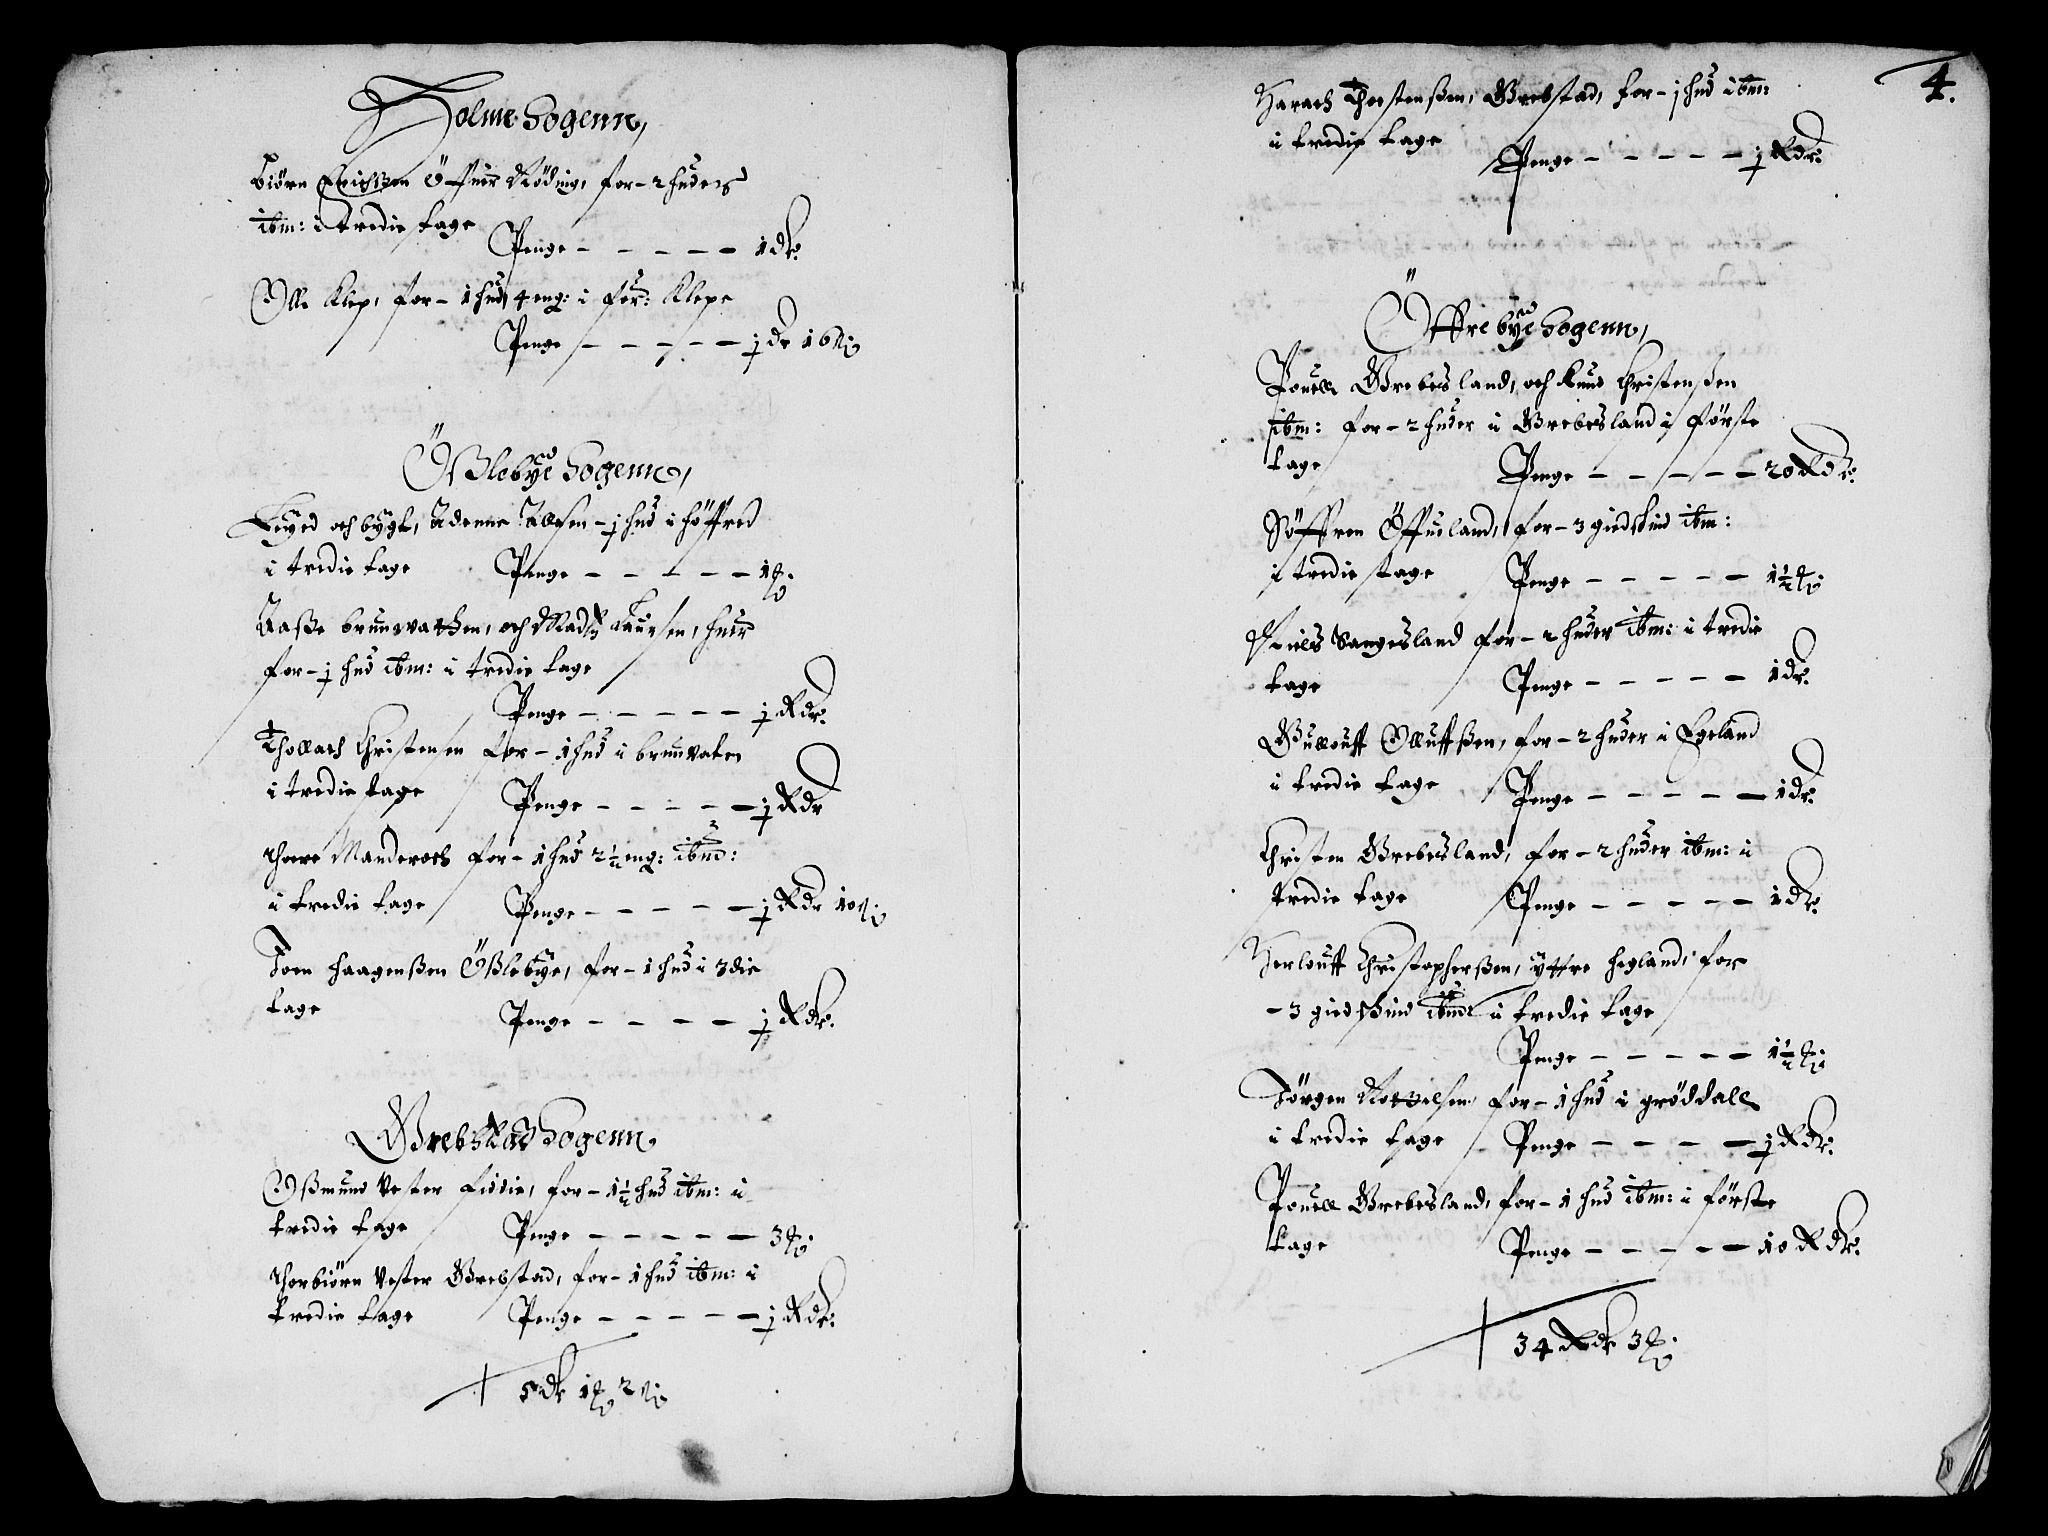 Holme Sogenn,
Biörn Erichßen Öffuer Röding, for - 2 huder
ibm: i tredie tage
Penge - - - - - 1 dr.
Olle Klep, for - 1 hud 4 eng: i for: Klepe
Penge - - - - - j dr 16 ß
Ößlebye Sogenn,
Leyed och bygt, Adenne Allesen - j hud i höffred
i tredie tage Penge - - - - - 1 ℔.
Aaße brunvathen, och Madz Laursen, huer
for - j hud ibm: i tredie tage
Penge - - - - - j Rdr.
Thollach Christensen for - 1 hud i brunvaten
i tredie tage Penge - - - - - j Rdr
Thore Manderoch for - 1 hud 2½ eng: ibm:
i tredie tage Penge - - - - - j Rdr 10 ß
Joen Haagenßen Ößlebye, for - 1 hud i 3die
tage Penge - - - - j Rdr.
Grebstad Sogenn
Oßmund Vester Fidie, for - 1½ hud ibm: i
tredie tage Penge - - - - - 3 ℔
Thorbiörn Vester Grebstad, for - 1 hud ibm: i
tredie tage Penge - - - - - j Rdr.
5 dr 1 ℔ 2 ß
4.
Harach Thostenßen, Grebstad, for - j hud ibm:
i tredie tage
Penge - - - - - j Rdr.
Öffrebye Sogenn,
Pouell Grebesland, och Knud Christenßen
ibm: for - 2 huder i Grebesland i förste
tage Penge - - - - - 20 Rdr.
Söffren Öffusland, for - 3 giedskind ibm:
i tredie tage Penge - - - - - 1½ ℔
Niels Vangesland for - 2 huder ibm: i tredie
tage Penge - - - - - 1 dr.
Gullouff Olluffßen, for - 2 huder i Egeland
i tredie tage Penge - - - - - 1 dr.
Christen Grebesland, for - 2 huder ibm: i
tredie tage Penge - - - - - 1 dr.
Herlouff Christopherßen, yttre hegland, for
- 3 giedskind ibm: i tredie tage
Penge - - - - - 1½ ℔
Jörgen for - 1 hud i gröddall
i tredie tage Penge - - - - - j Rdr.
Pouell Grebesland, for - 1 hud ibm: i förste
tage Penge - - - - - 10 Rdr.
34 Rdr 3 ℔